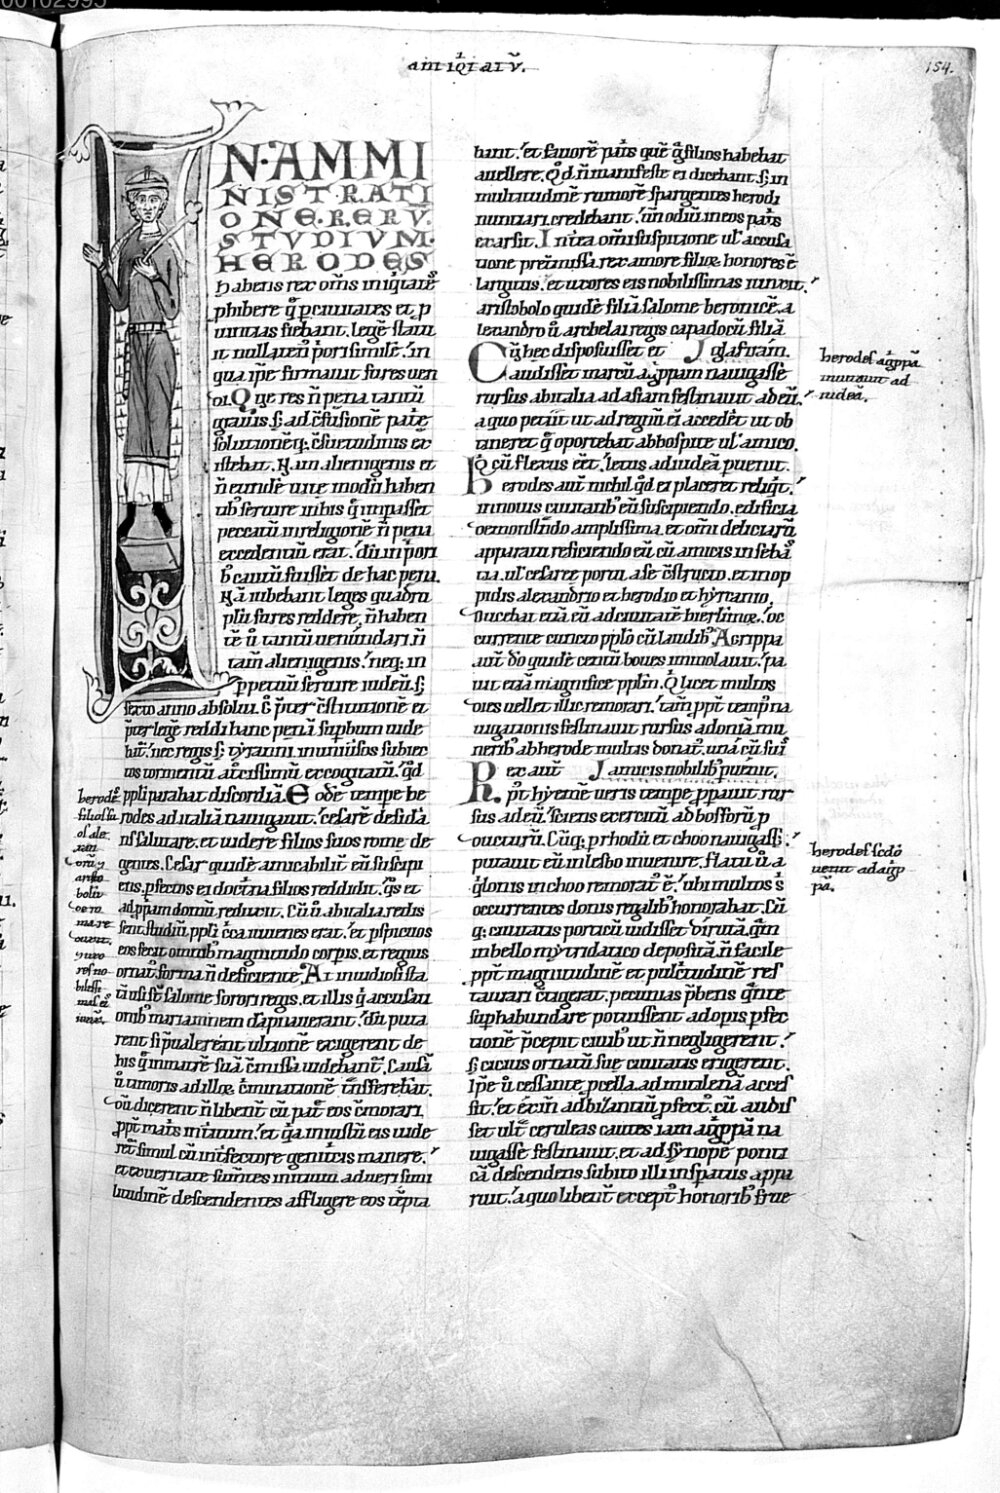 antiq̇tatū.
154.
N·AMMI
NISTRATI
ONE·RERV̄
STVDIVM·
HERODES
habens rex om̄s iniq̇tate᷒
phibere q̇ p ciuitates et p
uincias fiebant. legē statu
it nulli priori similē. in
qua ip̄e firmauit fures uen
di. Que res n̄ pena tantū
grauis. sȝ ad
solutionē consuetudinis ex
istebat. Nā alienigenis et
n̄ eundē uite modū haben
tibȝ seruire
peccatū in religionē n̄ pena
excedentiū erat. dū in priori
bȝ cautū fuisset de hac pena.
Nā iubebant leges quadru
plū fures reddere. n̄ haben
tē ů tantū uenūdari. n̄
tam̄ alienigenis. neqȝ in
ppetuū seruire iudeū sȝ
sexto anno absolui.
legē reddi hanc penā supbum uide
bat. nec regis sȝ tyranni
tormentū atrocissimū excogitatū. qd̄
ppli parabat discordiā. Eodē tempe he
rodes ad italiā nauigauit. cesarē desidā
ns salutare. et uidere filios suos rome de
gentes. Cesar quidē amicabilit̄ eū suscipi
ens. pfectos ei doctrina filios reddidit. q̇s et
ad ppriam domū reduxit. Cū ů ab italia redis
sent studiū ppli circa iuuenes erat. et pspicuos
eos fecit omnibȝ magnitudo corpis. et regius
ornat᷒. forma n̄ deficiente. At inuidiosi ista
salome sorori regis. et illis q̇ accusati
onibȝ mariamnem dāpnauerant. dū puta
rent si pualerent ultionē exigerent de
his q̇ in matrē suā cōmissa uidebant᷒. Causā
ů timoris ad illoꝝ criminationē transferebāt.
dū dicerent n̄ libent̄ cū patre eos cōmorari.
ppt̄ matris interitum. et q̇a iniustū eis uide
ret᷒ simul cū interfectore genitricis manere.
simi
litudinē descendentes affligere eos
herodes
filios su
os ale
xan
drū ⁊
aristo
bolū
de ro
ma re
duxit.
⁊ uxo
res no
bilissi
mas ei᷒
iunxit.
bant. et fauorē patris quē q̇ filios habebat
auellere. Qd̄ n̄ manifeste ei dicebant. sȝ in
multitudinē rumorē spargentes herodi
nuntiari credebant. un̄ odiū in eos patris
exarsit. Intra om̄i suspitione ul᷒ accusa
tione pretermissa. rex amore filioꝝ honores ē
largitus. et uxores eis nobilissimas iunxit.
aristobolo quidē filiā salome beronicē. a
lexandro ů archelai regis capadocū filiā
Cūq̇ hec disposuisset et glafiram.
audisset marcū agrippam nauigasse
rursus ab italia ad asiam festinauit ad eū.
a quo petiit ut ad regnū ei accederet ut ob
tineret q̇ oportebat ab hospite ul᷒ amico.
cū flexus eēt. letus ad iudeā puenit.
Herodes aut̄ nichil qd̄ ei placeret reliq̇t.
in nouis ciuitatibȝ eū suscipiendo. edificia
demonstrando amplissima. et om̄i deliciarū
apparatu reficiendo eū cū amicis in seba
tia. ul᷒ cesaree portu a se cōstructo. et in op
pidis alexandrio et herodio et hyrcanio.
Ducebat etiā eū ad ciuitatē hierl̄imoꝝ. oc
currente cuncto pplo cū laudibȝ. Agrippa
aut̄ dō quidē centū boues immolauit. pa
uit etiā magnifice pplm̄. Q̇ licet multos
dies uellet illic remorari. tam̄ ppt̄ temp᷒ na
uigationis festinauit rursus ad ioniā. mu
neribȝ ab herode multis donat᷒. unā cū sui᷒
Rex aut̄ amicis nobilibȝ puenit.
post hyemē ueris tempe ppauit rur
sus ad eū. sciens exercitū ad bosforū p
ducturū. Cūqȝ p rhodū et choo nauigasset.
putauit eū in lesbo inuenire. flatu ů a
q̇lonis in choo remorat᷒ ē. ubi multos s᷒
occurrentes donis regalibȝ honorabat. Cū
qȝ ciuitatis porticū uidisset dirutā. q̄m
in bello mytridatico depositā n̄ facile
ppt̄ magnitudinē et pulcritudinē res
taurari cōtigerat. pecunias p̄bens q̄nte
suphabundare potuissent ad opis pfec
tionē. p̄cepit ciuibȝ ut n̄ negligerent.
sȝ cicius ornatū sue ciuitatis erigerent.
Ip̄e ů cessante pcella. ad mitilenā acces
sit. et exin̄ ad bizantiū pfect᷒. cū audis
set ult̄ ceruleas cautes iam agrippā na
uigasse festinauit. et ad synopē ponti
cā descendens subito illi insperatus appa
ruit. a quo libent̄ except᷒ honoribȝ frue
herodes agrippā
inuitauit ad
iudeā.
herodes scd̄o
uenit ad agrip
pā.